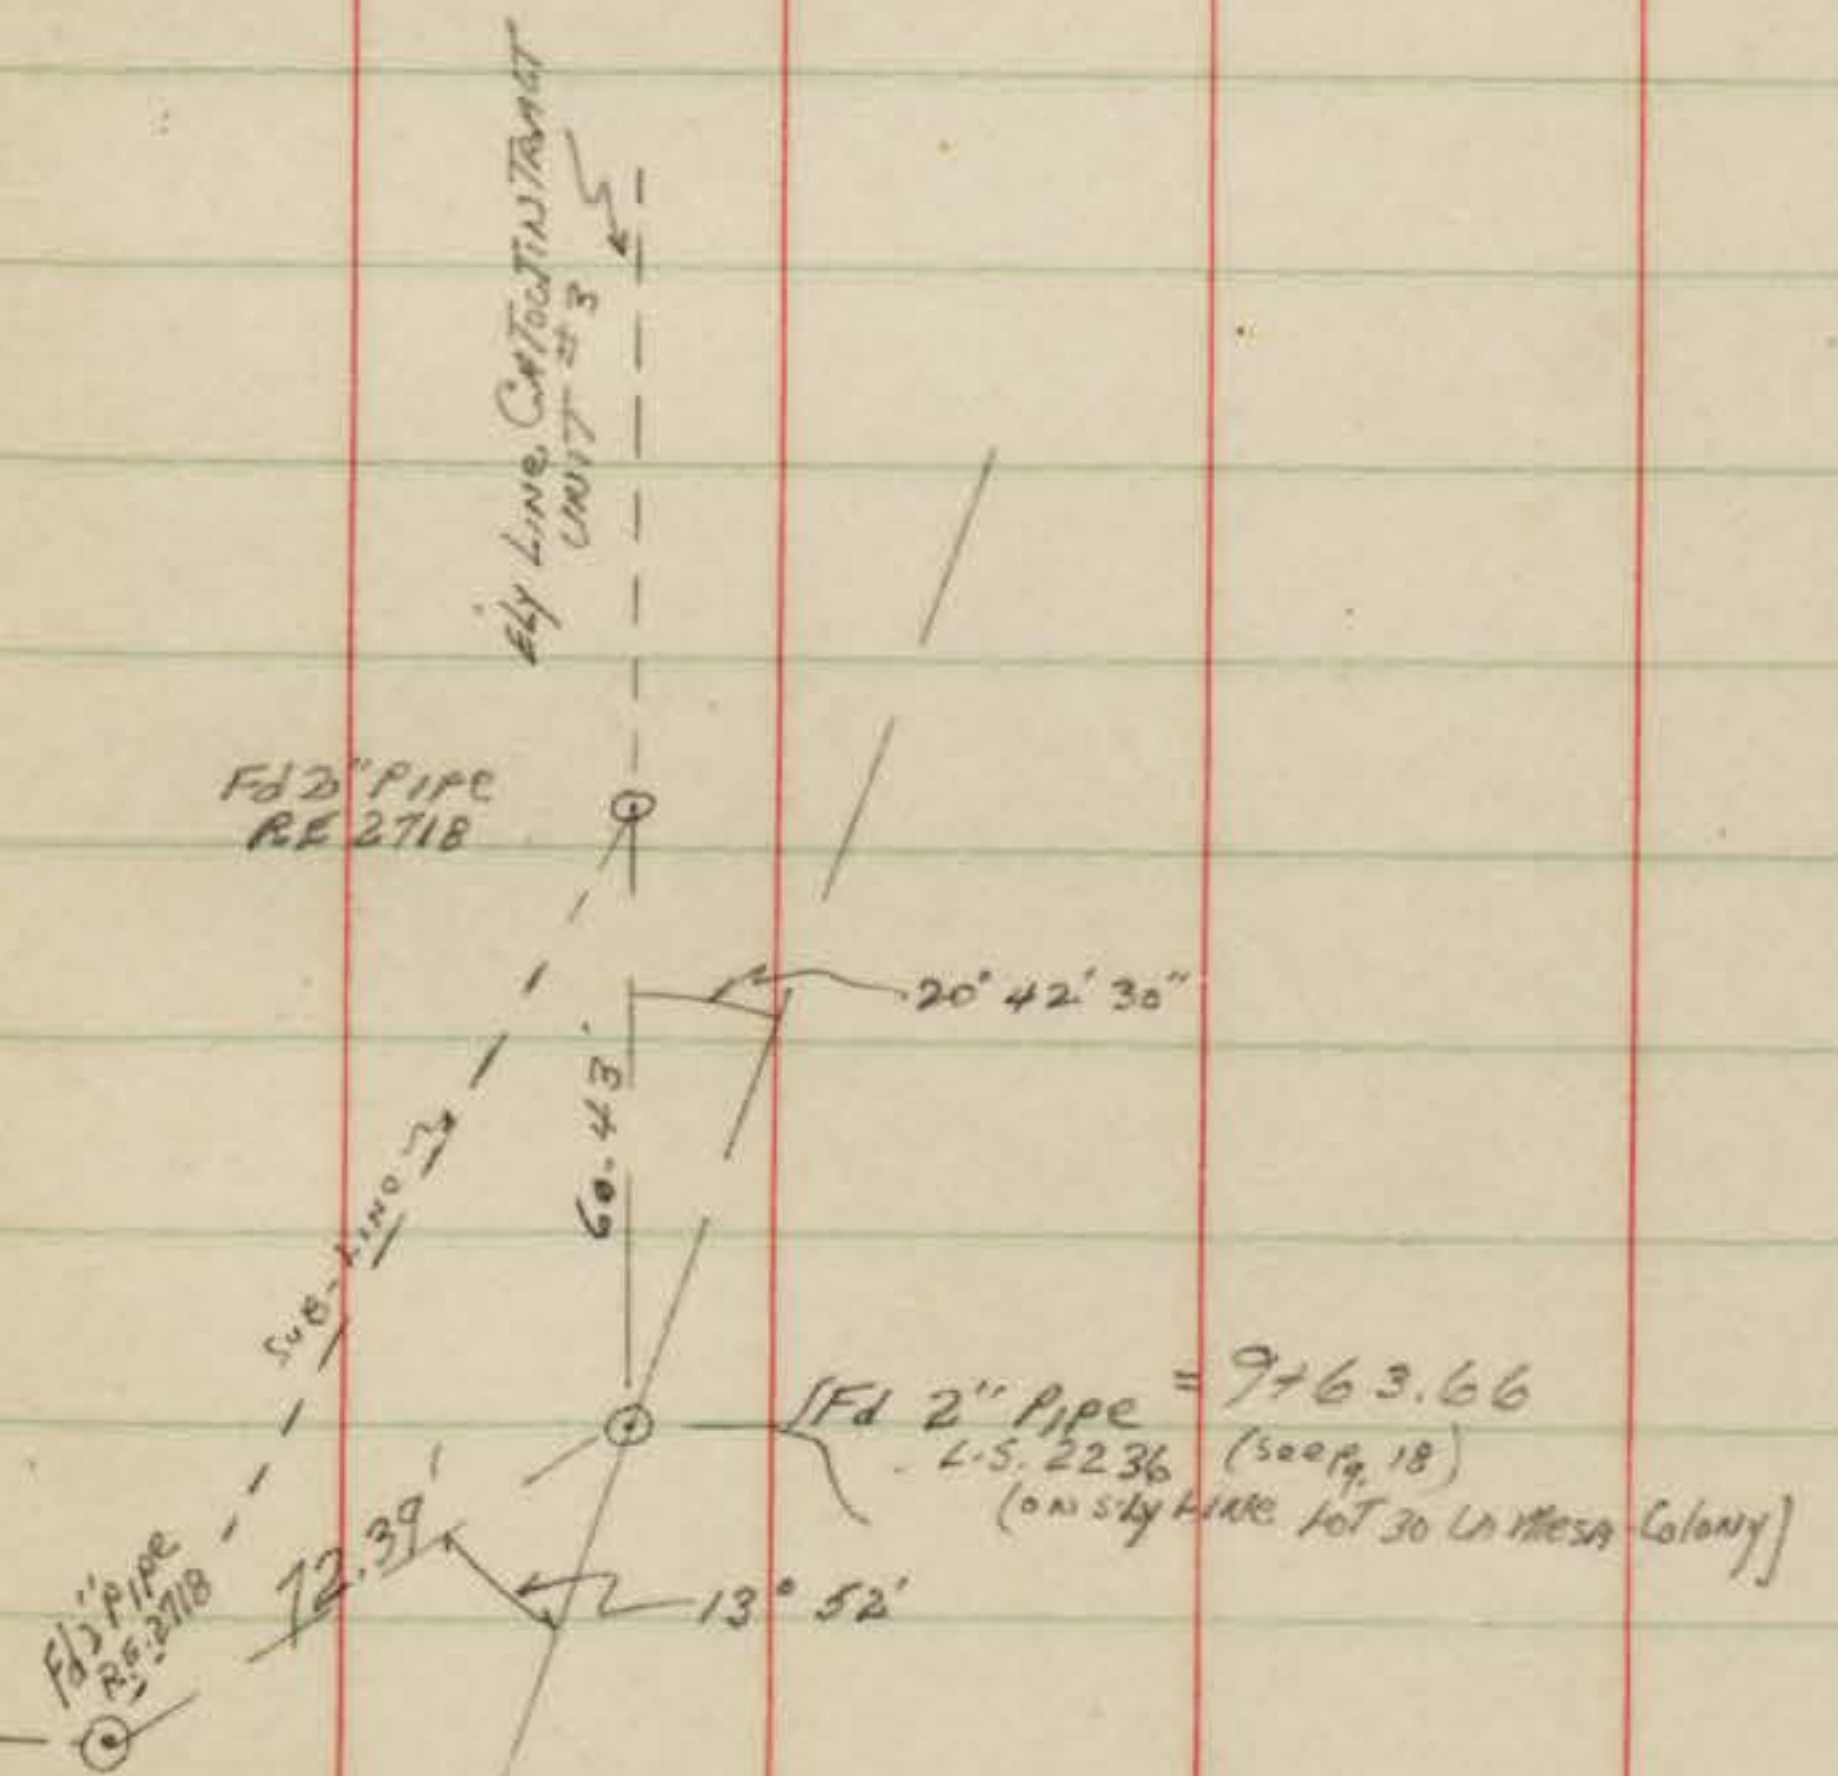 E'LY LINE CATOCTIN TRACT
UNIT #3
Fd 2" PIPE
RE 2718
20° 42' 30"
60.43'
SUB-LINE
Fd 2" PIPE = 9+63.66
L.S. 2236 (See Pg. 18)
(ON S'LY LINE LOT 30 LA MESA Colony)
72.39'
13° 52'
Fd 2" PIPE
R.E. 2718